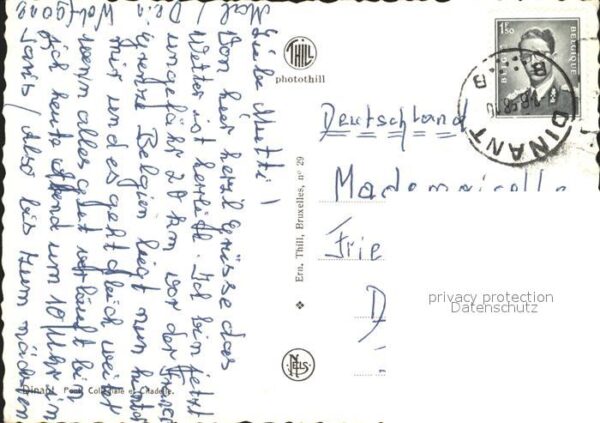 Liebe Mutti!
Von hier herzl Grüsse das
Wetter ist herrlich. Ich bin jetzt
ungefähr 20 km vor der Franz
Grenze Belgien liegt nun hinter
mir und es geht gleich weiter
wenn alles gut verläuft bin
ich heute Abend um 10 Uhr in
Paris / Also bis zum nächsten
Mal / Dein Wolfgang
THILL
photothill
Ern. Thill, Bruxelles, n° 29
NELS
Dinant. Pont et Citadelle.
1F50
BELGIQUE
DINANT
B B
Deutschland
Mademoiselle
Frie
D
privacy protection
Datenschutz